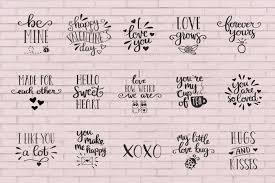 be
MINE
happy
VALENTINE'S
day
I
love
you
love
grows
forever
yours
MADE FOR
each other
HELLO
Sweet
HEART
love
how weird
we are
you're
my
cup
of
you
are
so loved
I LIKE YOU
a lot
you
make
me
happy
XOXO
my little
love bug
HUGS
AND
KISSES